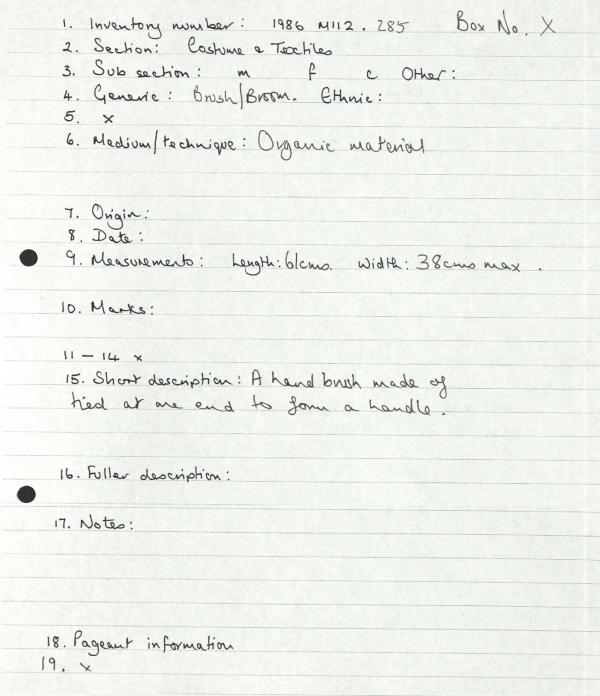 1. Inventory number: 1986 M112.285 Box No. X
2. Section: Costume & Textiles
3. Sub section: m f c Other:
4. Generic: Brush/Broom. Ethnic:
5. x
6. Medium/technique: Organic material
7. Origin:
8. Date:
9. Measurements: Length: 61cms. Width: 38cms max.
10. Marks:
11 - 14 x
15. Short description: A hand brush made of
tied at one end to form a handle.
16. Fuller description:
17. Notes:
18. Pageant information
19. x